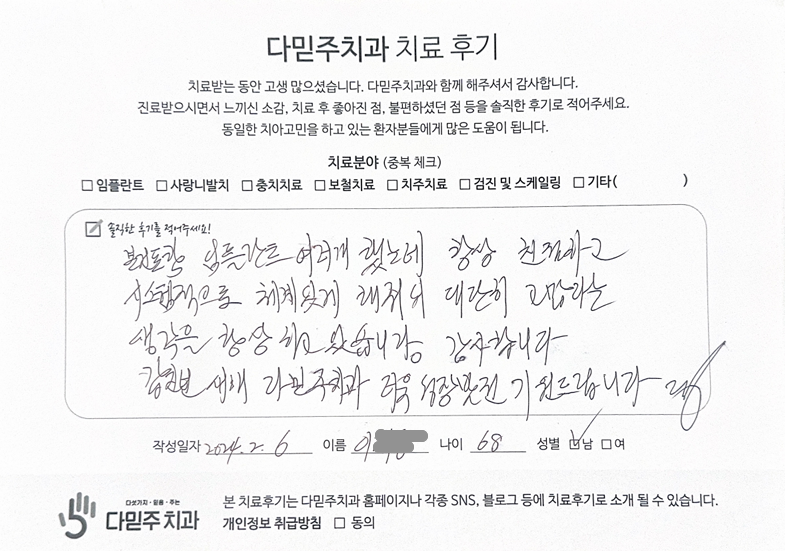 다믿주치과 치료 후기
치료받는 동안 고생 많으셨습니다. 다믿주치과와 함께 해주셔서 감사합니다.
진료받으시면서 느끼신 소감, 치료 후 좋아진 점, 불편하셨던 점 등을 솔직한 후기로 적어주세요.
동일한 치아고민을 하고 있는 환자분들에게 많은 도움이 됩니다.
치료분야 (중복 체크)
□ 임플란트 □ 사랑니발치 □ 충치치료 □ 보철치료 □ 치주치료 □ 검진 및 스케일링 □ 기타( )
솔직한 후기를 적어주세요!
임플란트 여러개 했는데 항상 친절하고
시스템적으로 체계있게 해줘서 대단히 고맙다는
생각을 항상 하고 있습니다. 감사합니다
새해 다믿주치과 더욱 성장발전 기원드립니다
작성일자 2024. 2. 6 이름 이 나이 68 성별 ☑남 □여
다섯가지·믿음·주는
다믿주치과
본 치료후기는 다믿주치과 홈페이지나 각종 SNS, 블로그 등에 치료후기로 소개 될 수 있습니다.
개인정보 취급방침 □ 동의